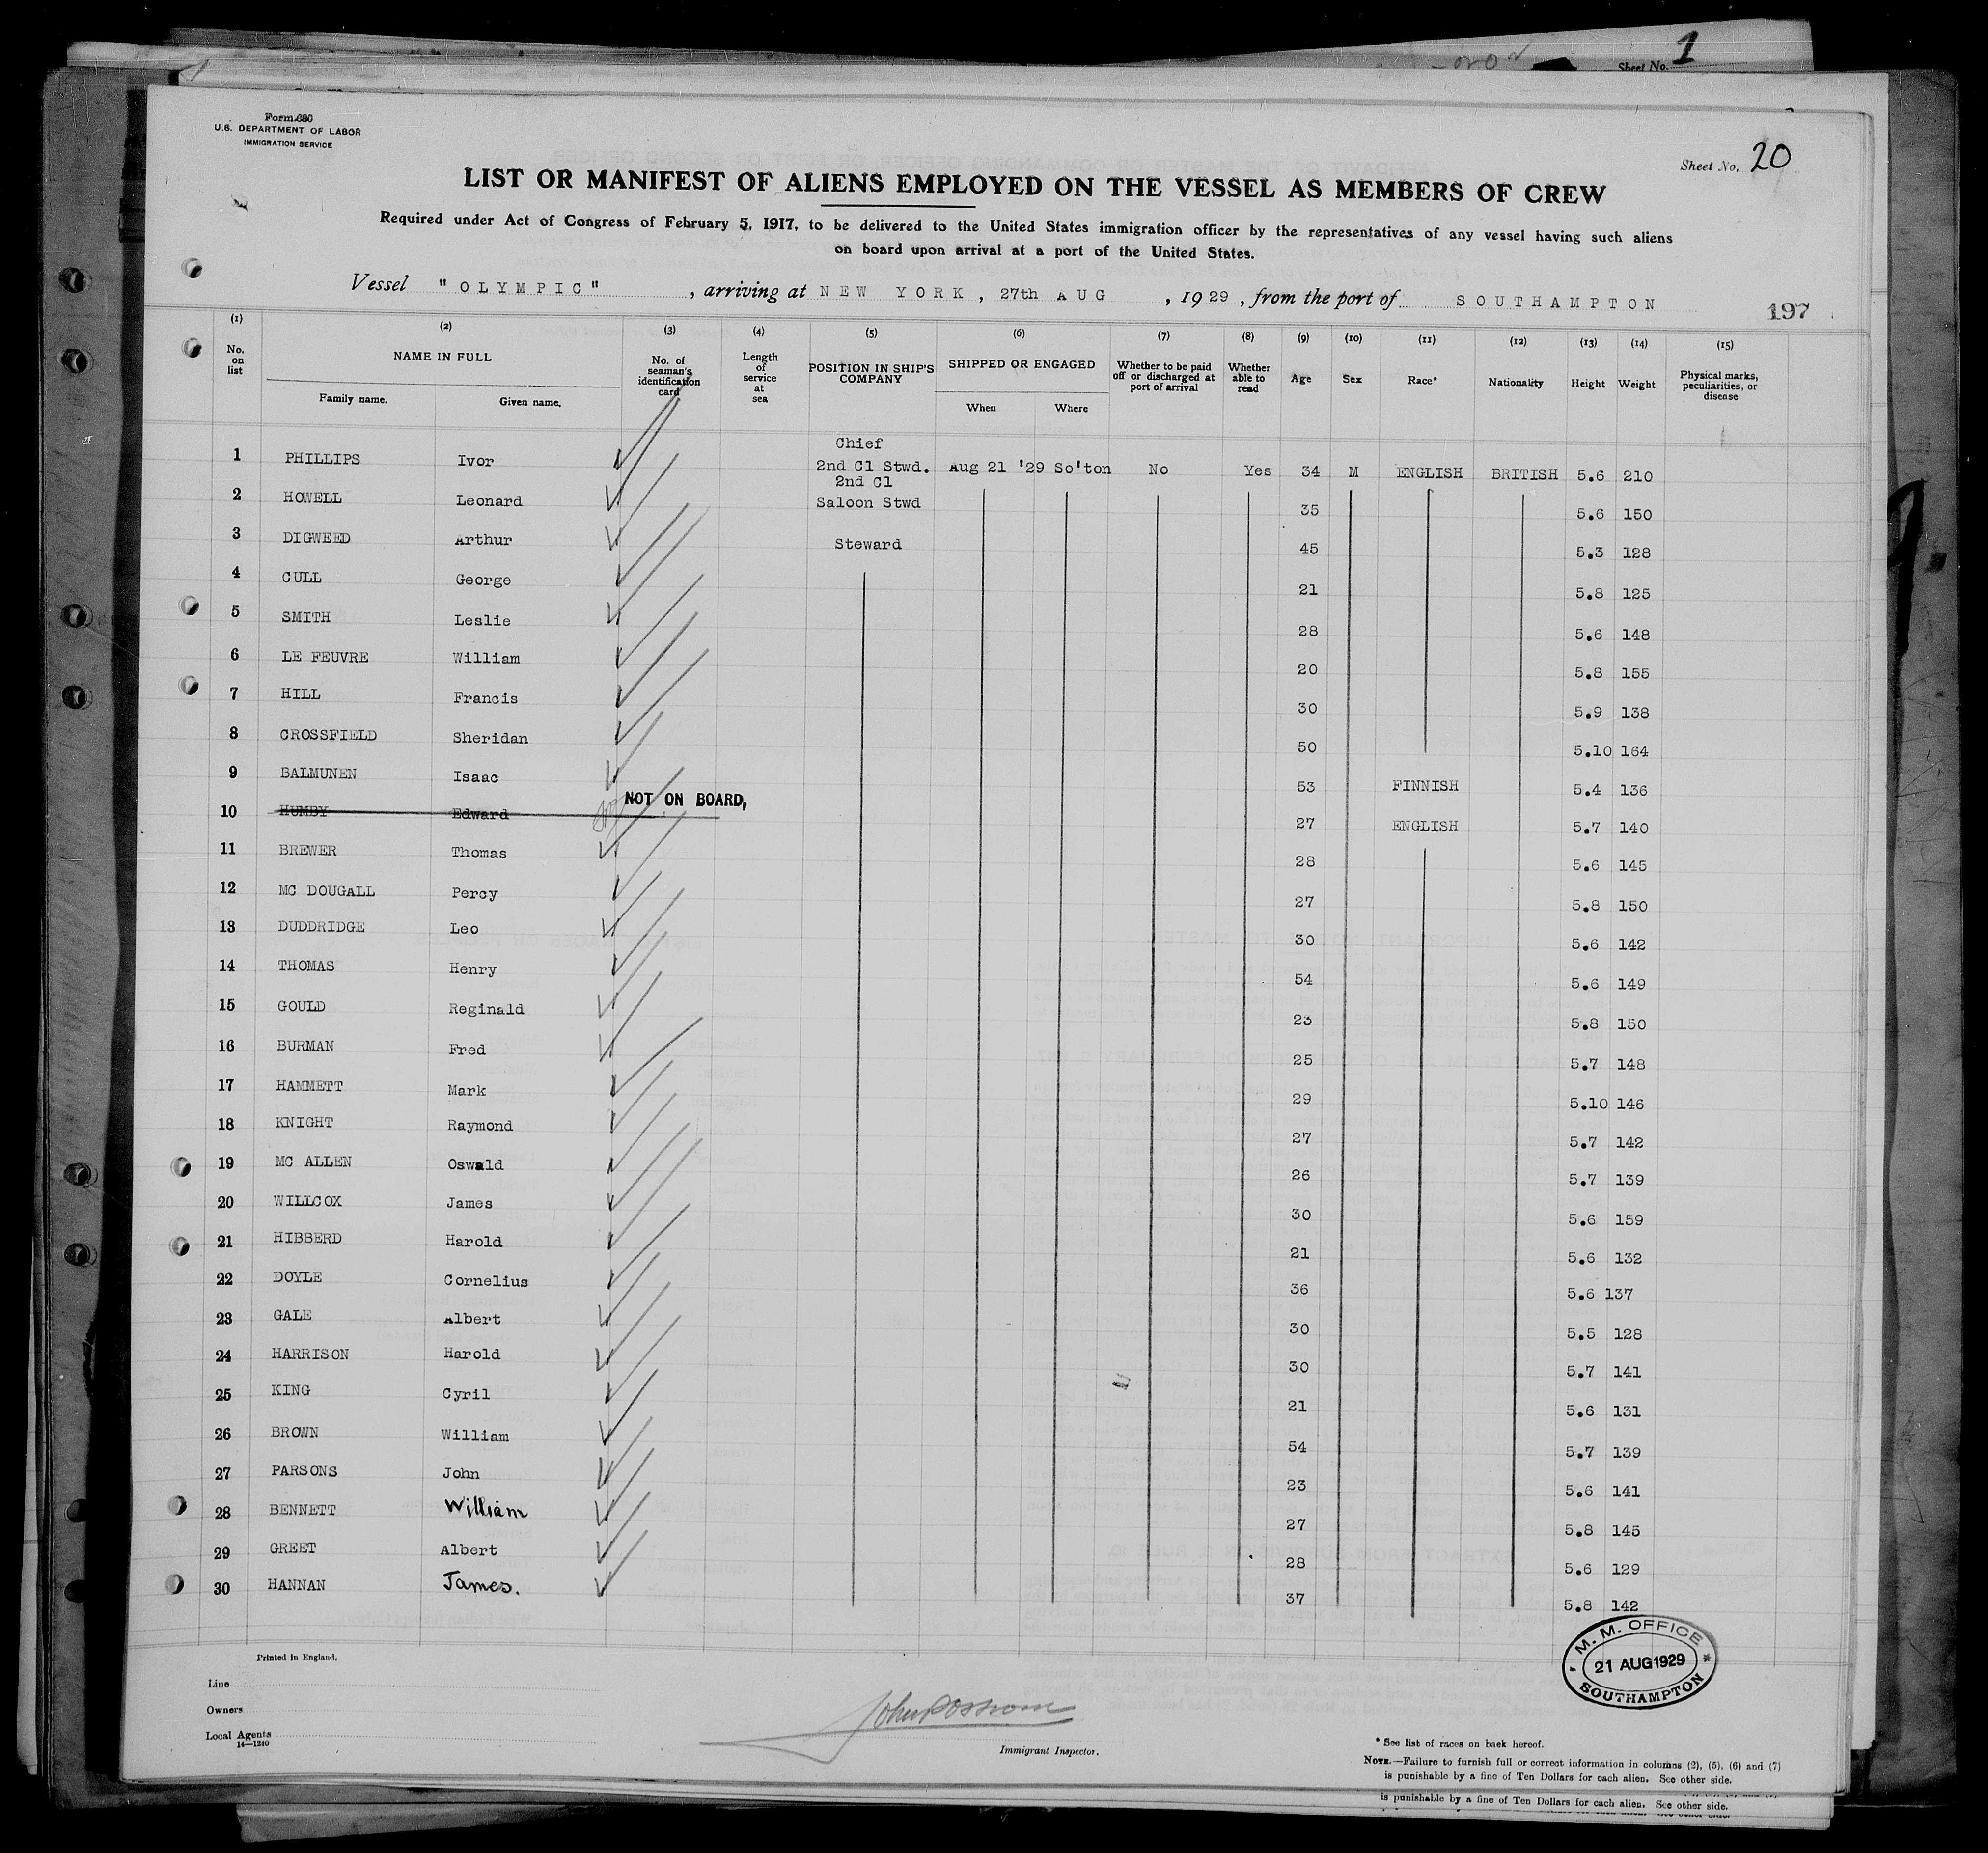 Sheet No. 1
Form 680
U.S. DEPARTMENT OF LABOR
IMMIGRATION SERVICE
Sheet No. 20
LIST OR MANIFEST OF ALIENS EMPLOYED ON THE VESSEL AS MEMBERS OF CREW
Required under Act of Congress of February 5, 1917, to be delivered to the United States immigration officer by the representatives of any vessel having such aliens
on board upon arrival at a port of the United States.
Vessel "OLYMPIC", arriving at NEW YORK, 27th AUG, 1929, from the port of SOUTHAMPTON
197
(1) (2) (3) (4) (5) (6) (7) (8) (9) (10) (11) (12) (13) (14) (15)
No. on list NAME IN FULL Family name. Given name. No. of seaman's identification card Length of service at sea POSITION IN SHIP'S COMPANY SHIPPED OR ENGAGED When Where Whether to be paid off or discharged at port of arrival Whether able to read Age Sex Race* Nationality Height Weight Physical marks, peculiarities, or disease
1 PHILLIPS Ivor Chief 2nd Cl Stwd. Aug 21 '29 So'ton No Yes 34 M ENGLISH BRITISH 5.6 210
2 HOWELL Leonard 2nd Cl Saloon Stwd 35 5.6 150
3 DIGWEED Arthur Steward 45 5.3 128
4 CULL George 21 5.8 125
5 SMITH Leslie 28 5.6 148
6 LE FEUVRE William 20 5.8 155
7 HILL Francis 30 5.9 138
8 CROSSFIELD Sheridan 50 5.10 164
9 BALMUNEN Isaac 53 FINNISH 5.4 136
10 HUMBY Edward NOT ON BOARD, 27 ENGLISH 5.7 140
11 BREWER Thomas 28 5.6 145
12 MC DOUGALL Percy 27 5.8 150
13 DUDDRIDGE Leo 30 5.6 142
14 THOMAS Henry 54 5.6 149
15 GOULD Reginald 23 5.8 150
16 BURMAN Fred 25 5.7 148
17 HAMMETT Mark 29 5.10 146
18 KNIGHT Raymond 27 5.7 142
19 MC ALLEN Oswald 26 5.7 139
20 WILLCOX James 30 5.6 159
21 HIBBERD Harold 21 5.6 132
22 DOYLE Cornelius 36 5.6 137
23 GALE Albert 30 5.5 128
24 HARRISON Harold 30 5.7 141
25 KING Cyril 21 5.6 131
26 BROWN William 54 5.7 139
27 PARSONS John 23 5.6 141
28 BENNETT William 27 5.8 145
29 GREET Albert 28 5.6 129
30 HANNAN James. 37 5.8 142
M. M. OFFICE
21 AUG 1929
SOUTHAMPTON
Printed in England.
Line
Owners
Local Agents
14—1240
Immigrant Inspector.
* See list of races on back hereof.
NOTE.—Failure to furnish full or correct information in columns (2), (5), (6) and (7)
is punishable by a fine of Ten Dollars for each alien. See other side.
is punishable by a fine of Ten Dollars for each alien. See other side.